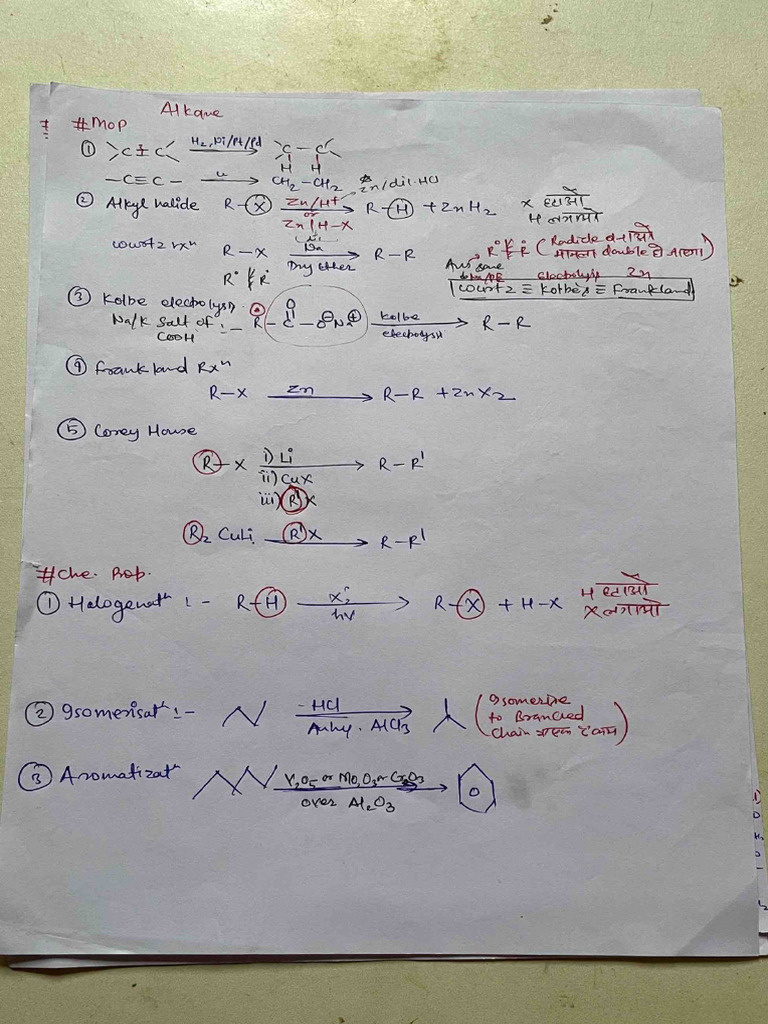 Alkane
# MOP
① >C=C< H₂, Ni/Pt/Pd → >C–C<
H H
–C≡C– " → CH₂–CH₂ Zn/dil.HCl
② Alkyl halide R–X Zn/H⁺ or Zn/H–X → R–H + ZnH₂ X हटाओ
H लगाओ
wourtz rxⁿ R–X Na Dry Ether → R–R R° R° (Radicle बनाओ
मामला double हो जाएगा)
R° R°
electrolysis Zn
wourtz ≡ Kolbe's ≡ Frankland
③ Kolbe electrolysis
Na/K Salt of COOH :– R–C–O⊖Na⊕ kolbe electrolysis → R–R
O
④ Frankland Rxⁿ
R–X Zn → R–R + ZnX₂
⑤ Corey House
R–X i) Li → R–R'
ii) CuX
iii) R'X
R₂ CuLi R'X → R–R'
# Che. Prop.
① Halogenatⁿ :– R–H X₂ hν → R–X + H–X H हटाओ
X लगाओ
② Isomerisatⁿ :– –HCl Anhy. AlCl₃ → (Isomerise
to Branched
chain)
③ Aromatizatⁿ V₂O₅ or Mo₂O₃ or Cr₂O₃ →
over Al₂O₃